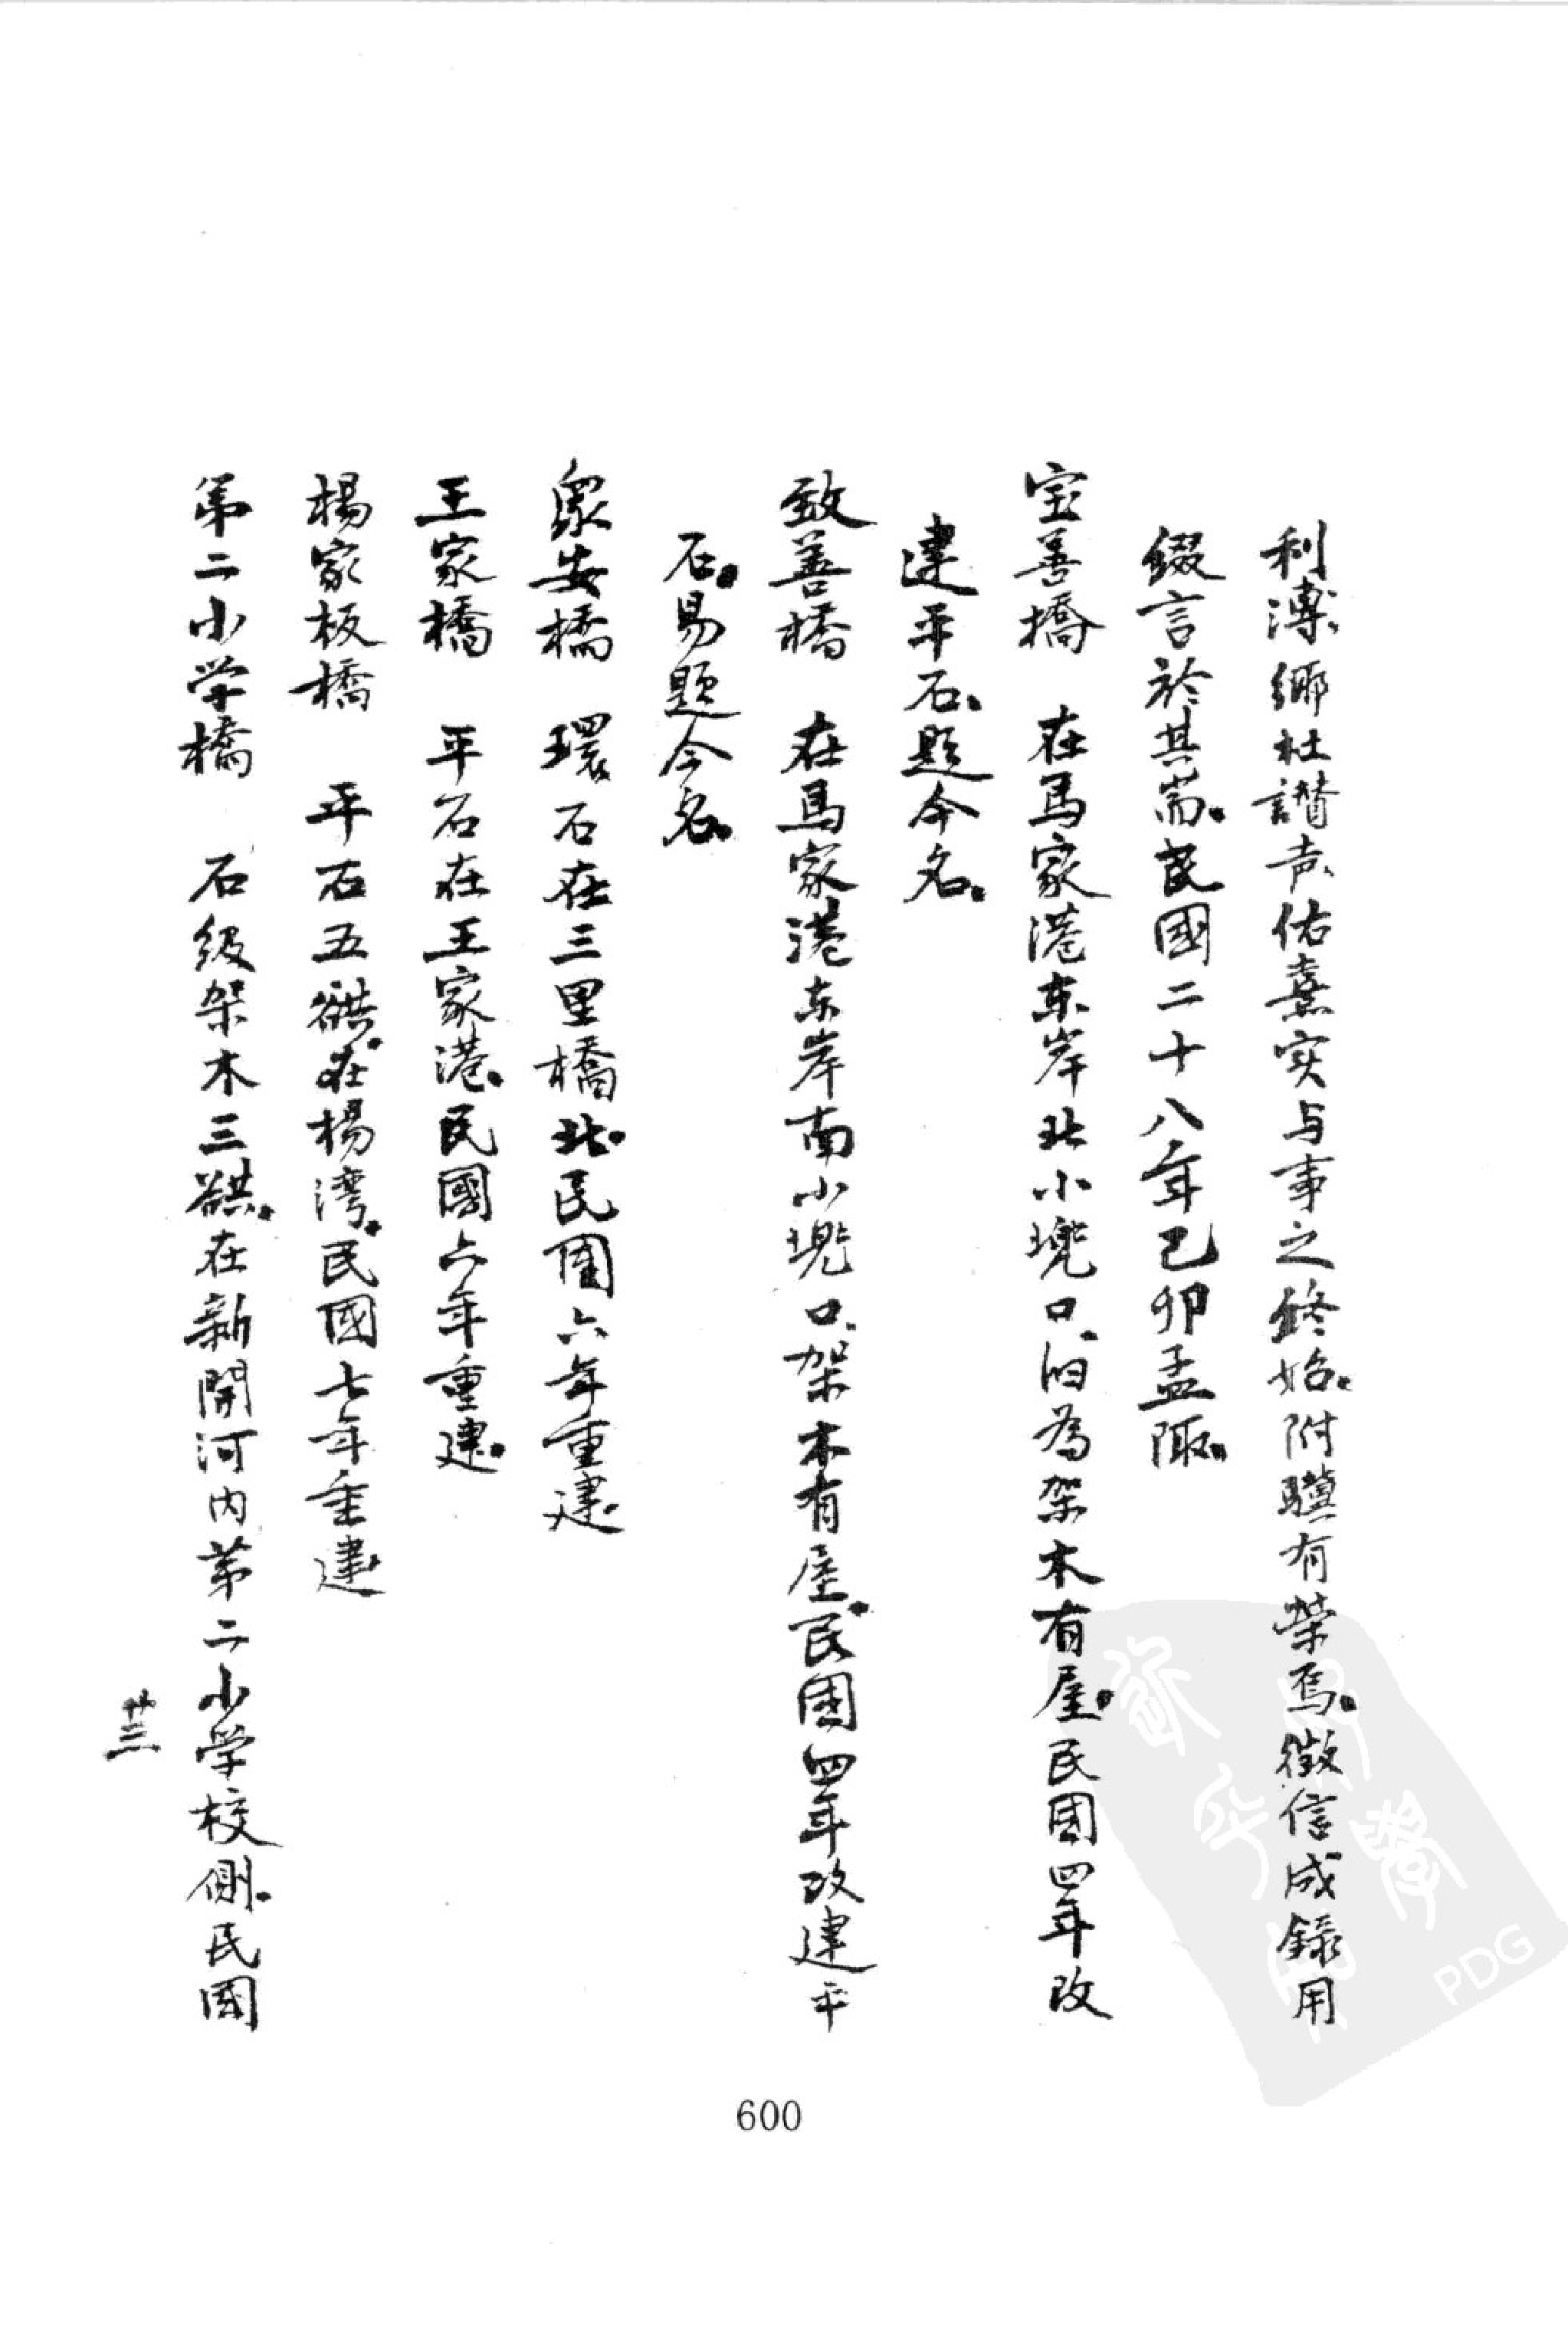 利溥、鄉社讚声、佑熹实与事之終始。附驥有榮焉。徵信成錄用
綴言於其耑。民國二十八年己卯孟陬。
宝善橋　在馬家港東岸北小兠口、旧為架木有屋。民國四年改
建平石、題今名。
致善橋　在馬家港东岸南小兠口、架木有屋。民國四年改建平
石。易題今名。
眾安橋　環石在三里橋北。民國六年重建。
王家橋　平石在王家港。民國六年重建。
楊家板橋　平石五谼。在楊湾。民國七年重建
第二小学橋　石級架木三谼。在新開河内第二小学校側。民國
廿三
600
PDG